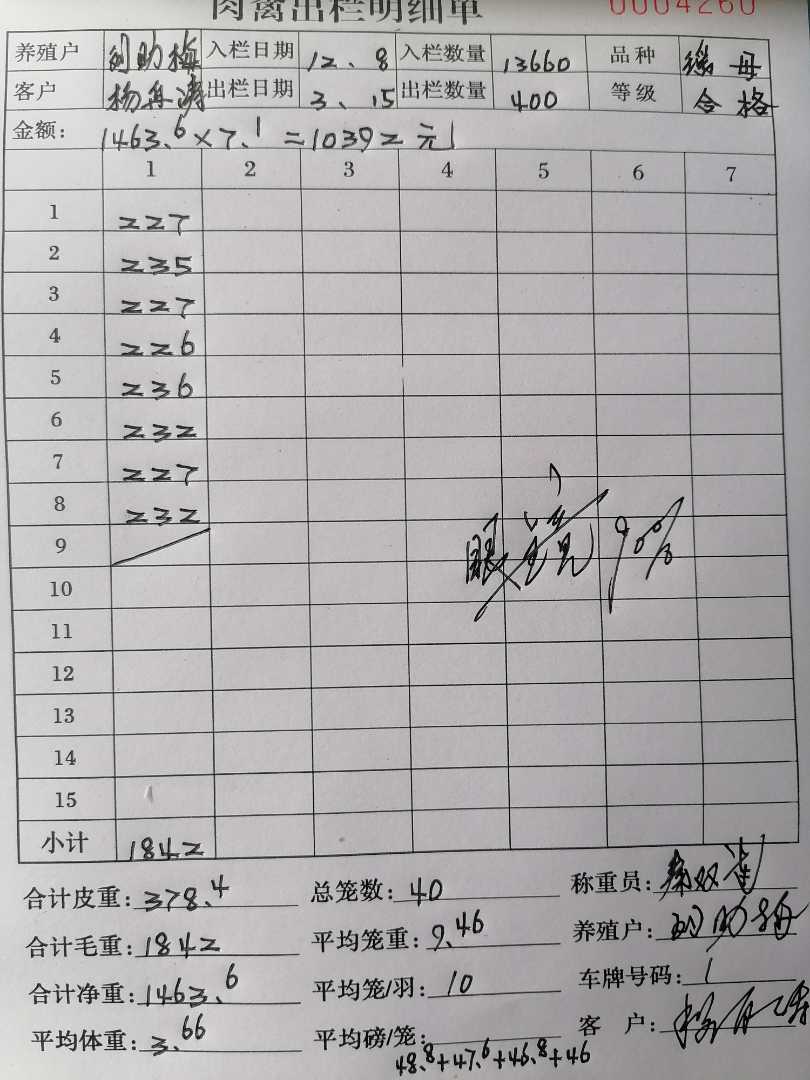 肉禽出栏明细单 0004260
养殖户 刘助梅 入栏日期 12.8 入栏数量 13660 品种
客户 杨再涛 出栏日期 3.15 出栏数量 400 等级 合格
金额: 1463.6×7.1=10392元
1 2 3 4 5 6 7
1 227
2 235
3 227
4 226
5 236
6 232
7 227
8 232
9
10
11
12
13
14
15
小计 1842
合计皮重: 378.4 总笼数: 40 称重员:
合计毛重: 1842 平均笼重: 9.46 养殖户: 刘助梅
合计净重: 1463.6 平均笼/羽: 10 车牌号码: 1
平均体重: 3.66 平均磅/笼: 客 户:
48.8+47.6+46.8+46